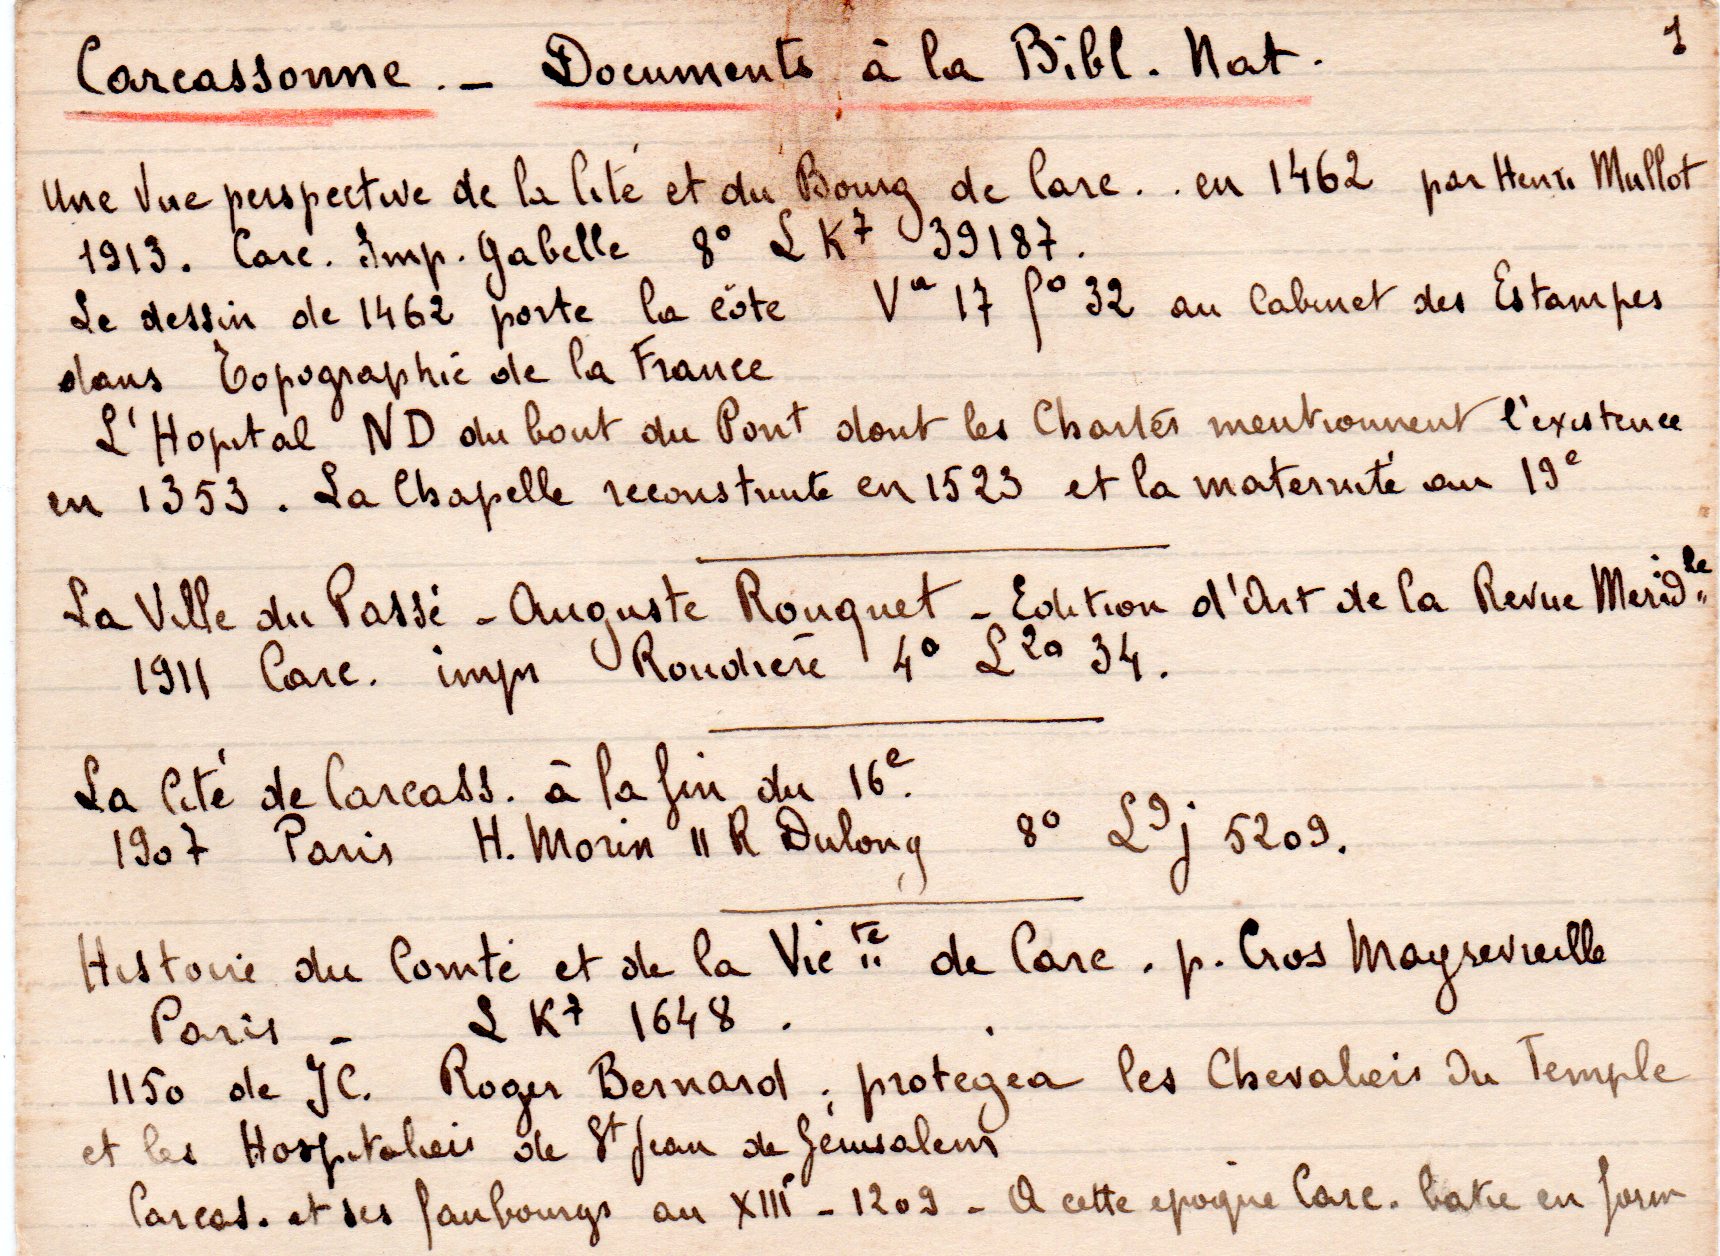 1
Carcassonne. - Documents à la Bibl. Nat.
Une Vue perspective de la Cité et du Bourg de Carc.. en 1462 par Henri Mullot
1913. Carc. Imp. Gabelle 8° L K7 39187.
Le dessin de 1462 porte la côte Va 17 f° 32 au Cabinet des Estampes
dans Topographie de la France
L'Hopital ND du bout du Pont dont les Chartes mentionnent l'existence
en 1353. La Chapelle reconstruite en 1523 et la maternité au 19e
La Ville du Passé - Auguste Rouquet - Edition d'Art de la Revue Meridle
1911 Carc. impr Roudière 4° L2a 34.
La Cité de Carcass. à la fin du 16e.
1907 Paris H. Morin 11 R Dulong 8° L9j 5209.
Histoire du Comté et de la Victé de Carc. p. Cros Mayrevieille
Paris - L K7 1648.
1150 de JC. Roger Bernard, protegea les Chevaliers du Temple
et les Hospitaliers de St Jean de Jérusalem
Carcas. et ses faubourgs au XIII - 1209 - A cette epoque Carc. batie en form